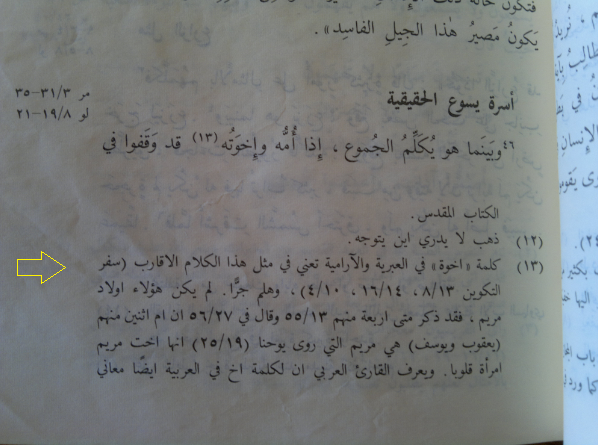 فتكون حالة ذلك
يَكونُ مَصيرُ هٰذا الجِيلِ الفاسِد».
أسرة يسوع الحقيقية
مر ٣/٣١-٣٥
لو ٨/١٩-٢١
٤٦وبَينَما هو يُكَلِّمُ الجُموع ، إِذا أُمُّه وإِخوَتُه (١٣) قد وَقَفوا في
الكتاب المقدس .
(١٢) ذهب لا يدري اين يتوجه .
(١٣) كلمة «اخوة» في العبرية والآرامية تعني في مثل هذا الكلام الاقارب (سفر
التكوين ١٣/٨ ، ١٤/١٦ ، ١٠/٤) ، وهلم جرًّا . لم يكن هؤلاء اولاد
مريم ، فقد ذكر متى اربعة منهم ١٣/٥٥ وقال في ٢٧/٥٦ ان ام اثنين منهم
(يعقوب ويوسف) هي مريم التي روى يوحنا (١٩/٢٥) انها اخت مريم
امرأة قلوبا . ويعرف القارئ العربي ان لكلمة اخ في العربية ايضًا معاني